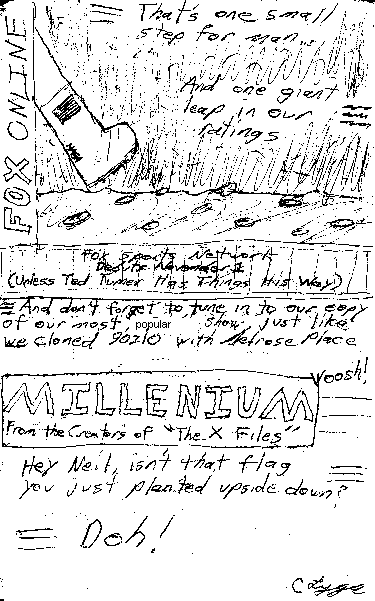 FOX ONLINE
That's one small
step for man...
And one giant
leap in our
ratings
Fox Sports Network
Debuts November 1
(Unless Ted Turner Has Things His Way)
And don't forget to tune in to our copy
of our most popular show, just like
we cloned 90210 with Melrose Place
Voosh!
MILLENIUM
From the Creators of "The X Files"
Hey Neil, isn't that flag
you just planted upside down?
Doh!